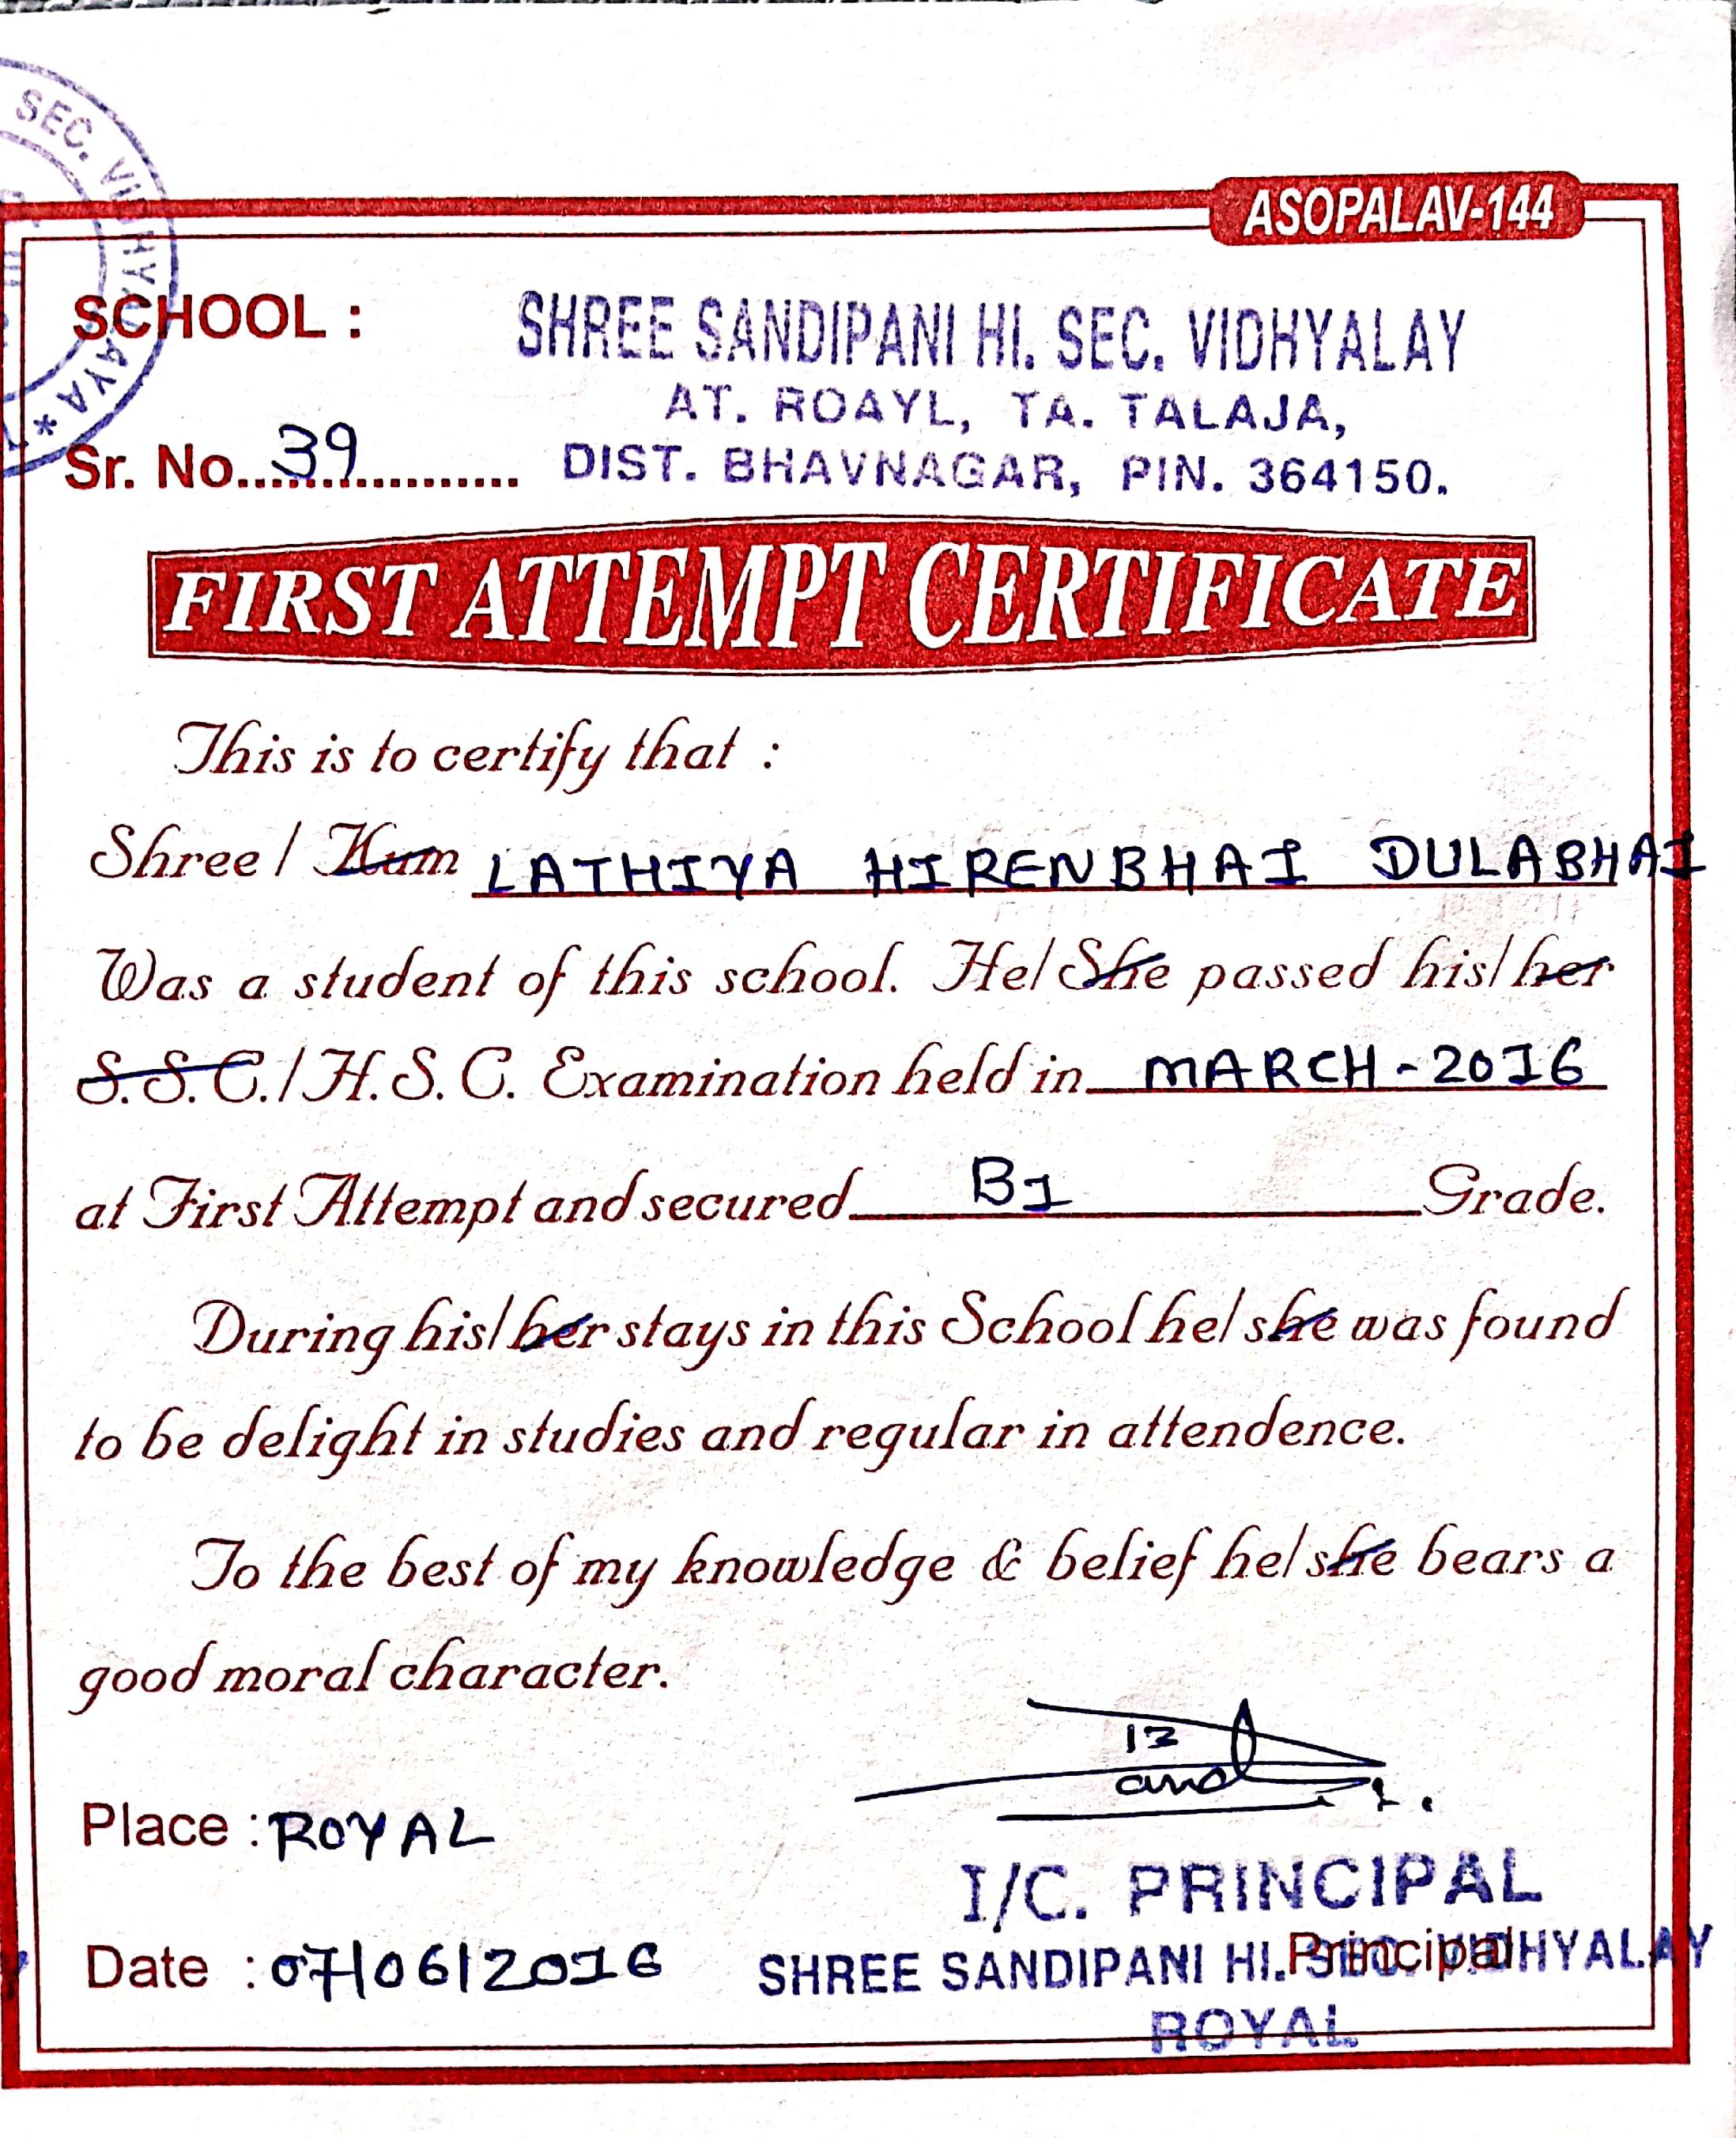 SEC. VIDHYALAYA *
ASOPALAV-144
SCHOOL :
SHREE SANDIPANI HI. SEC. VIDHYALAY
AT. ROAYL, TA. TALAJA,
Sr. No. 39
DIST. BHAVNAGAR, PIN. 364150.
FIRST ATTEMPT CERTIFICATE
This is to certify that :
Shree / Kum LATHIYA HIRENBHAI DULABHAI
Was a student of this school. He/ She passed his/ her
S.S.C./ H.S.C. Examination held in MARCH-2016
at First Attempt and secured B1 Grade.
During his/ her stays in this School he/ she was found
to be delight in studies and regular in attendence.
To the best of my knowledge & belief he/ she bears a
good moral character.
Place : ROYAL
I/C. PRINCIPAL
Principal
Date : 07/06/2016
SHREE SANDIPANI HI. SEC. VIDHYALAY
ROYAL